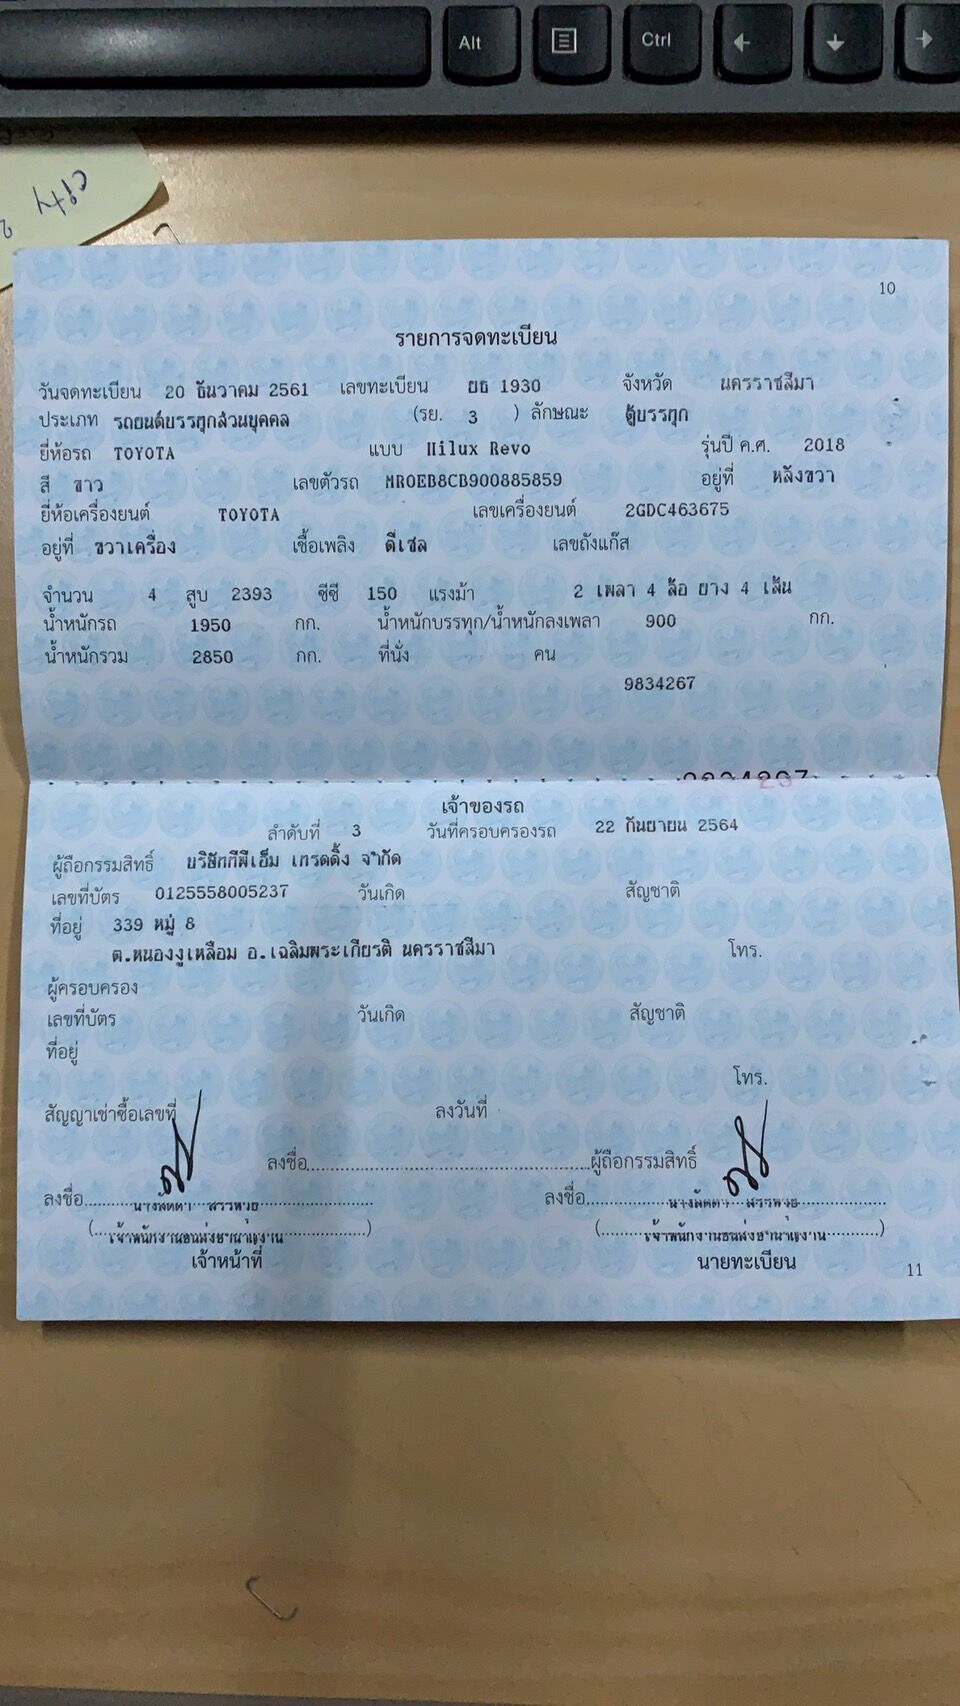 Alt
Ctrl
10
รายการจดทะเบียน
วันจดทะเบียน 20 ธันวาคม 2561 เลขทะเบียน ยธ 1930 จังหวัด นครราชสีมา
ประเภท รถยนต์บรรทุกส่วนบุคคล (รย. 3 ) ลักษณะ ตู้บรรทุก
ยี่ห้อรถ TOYOTA แบบ Hilux Revo รุ่นปี ค.ศ. 2018
สี ขาว เลขตัวรถ MR0EB8CB900885859 อยู่ที่ หลังขวา
ยี่ห้อเครื่องยนต์ TOYOTA เลขเครื่องยนต์ 2GDC463675
อยู่ที่ ขวาเครื่อง เชื้อเพลิง ดีเซล เลขถังแก๊ส
จำนวน 4 สูบ 2393 ซีซี 150 แรงม้า 2 เพลา 4 ล้อ ยาง 4 เส้น
น้ำหนักรถ 1950 กก. น้ำหนักบรรทุก/น้ำหนักลงเพลา 900 กก.
น้ำหนักรวม 2850 กก. ที่นั่ง คน
9834267
เจ้าของรถ
ลำดับที่ 3 วันที่ครอบครองรถ 22 กันยายน 2564
ผู้ถือกรรมสิทธิ์ บริษัททีพีเอ็ม เทรดดิ้ง จำกัด
เลขที่บัตร 0125558005237 วันเกิด สัญชาติ
ที่อยู่ 339 หมู่ 8
ต.หนองงูเหลือม อ.เฉลิมพระเกียรติ นครราชสีมา โทร.
ผู้ครอบครอง
เลขที่บัตร วันเกิด สัญชาติ
ที่อยู่
โทร.
สัญญาเช่าซื้อเลขที่ ลงวันที่
ลงชื่อ ผู้ถือกรรมสิทธิ์
ลงชื่อ ลงชื่อ
เจ้าหน้าที่ นายทะเบียน
11